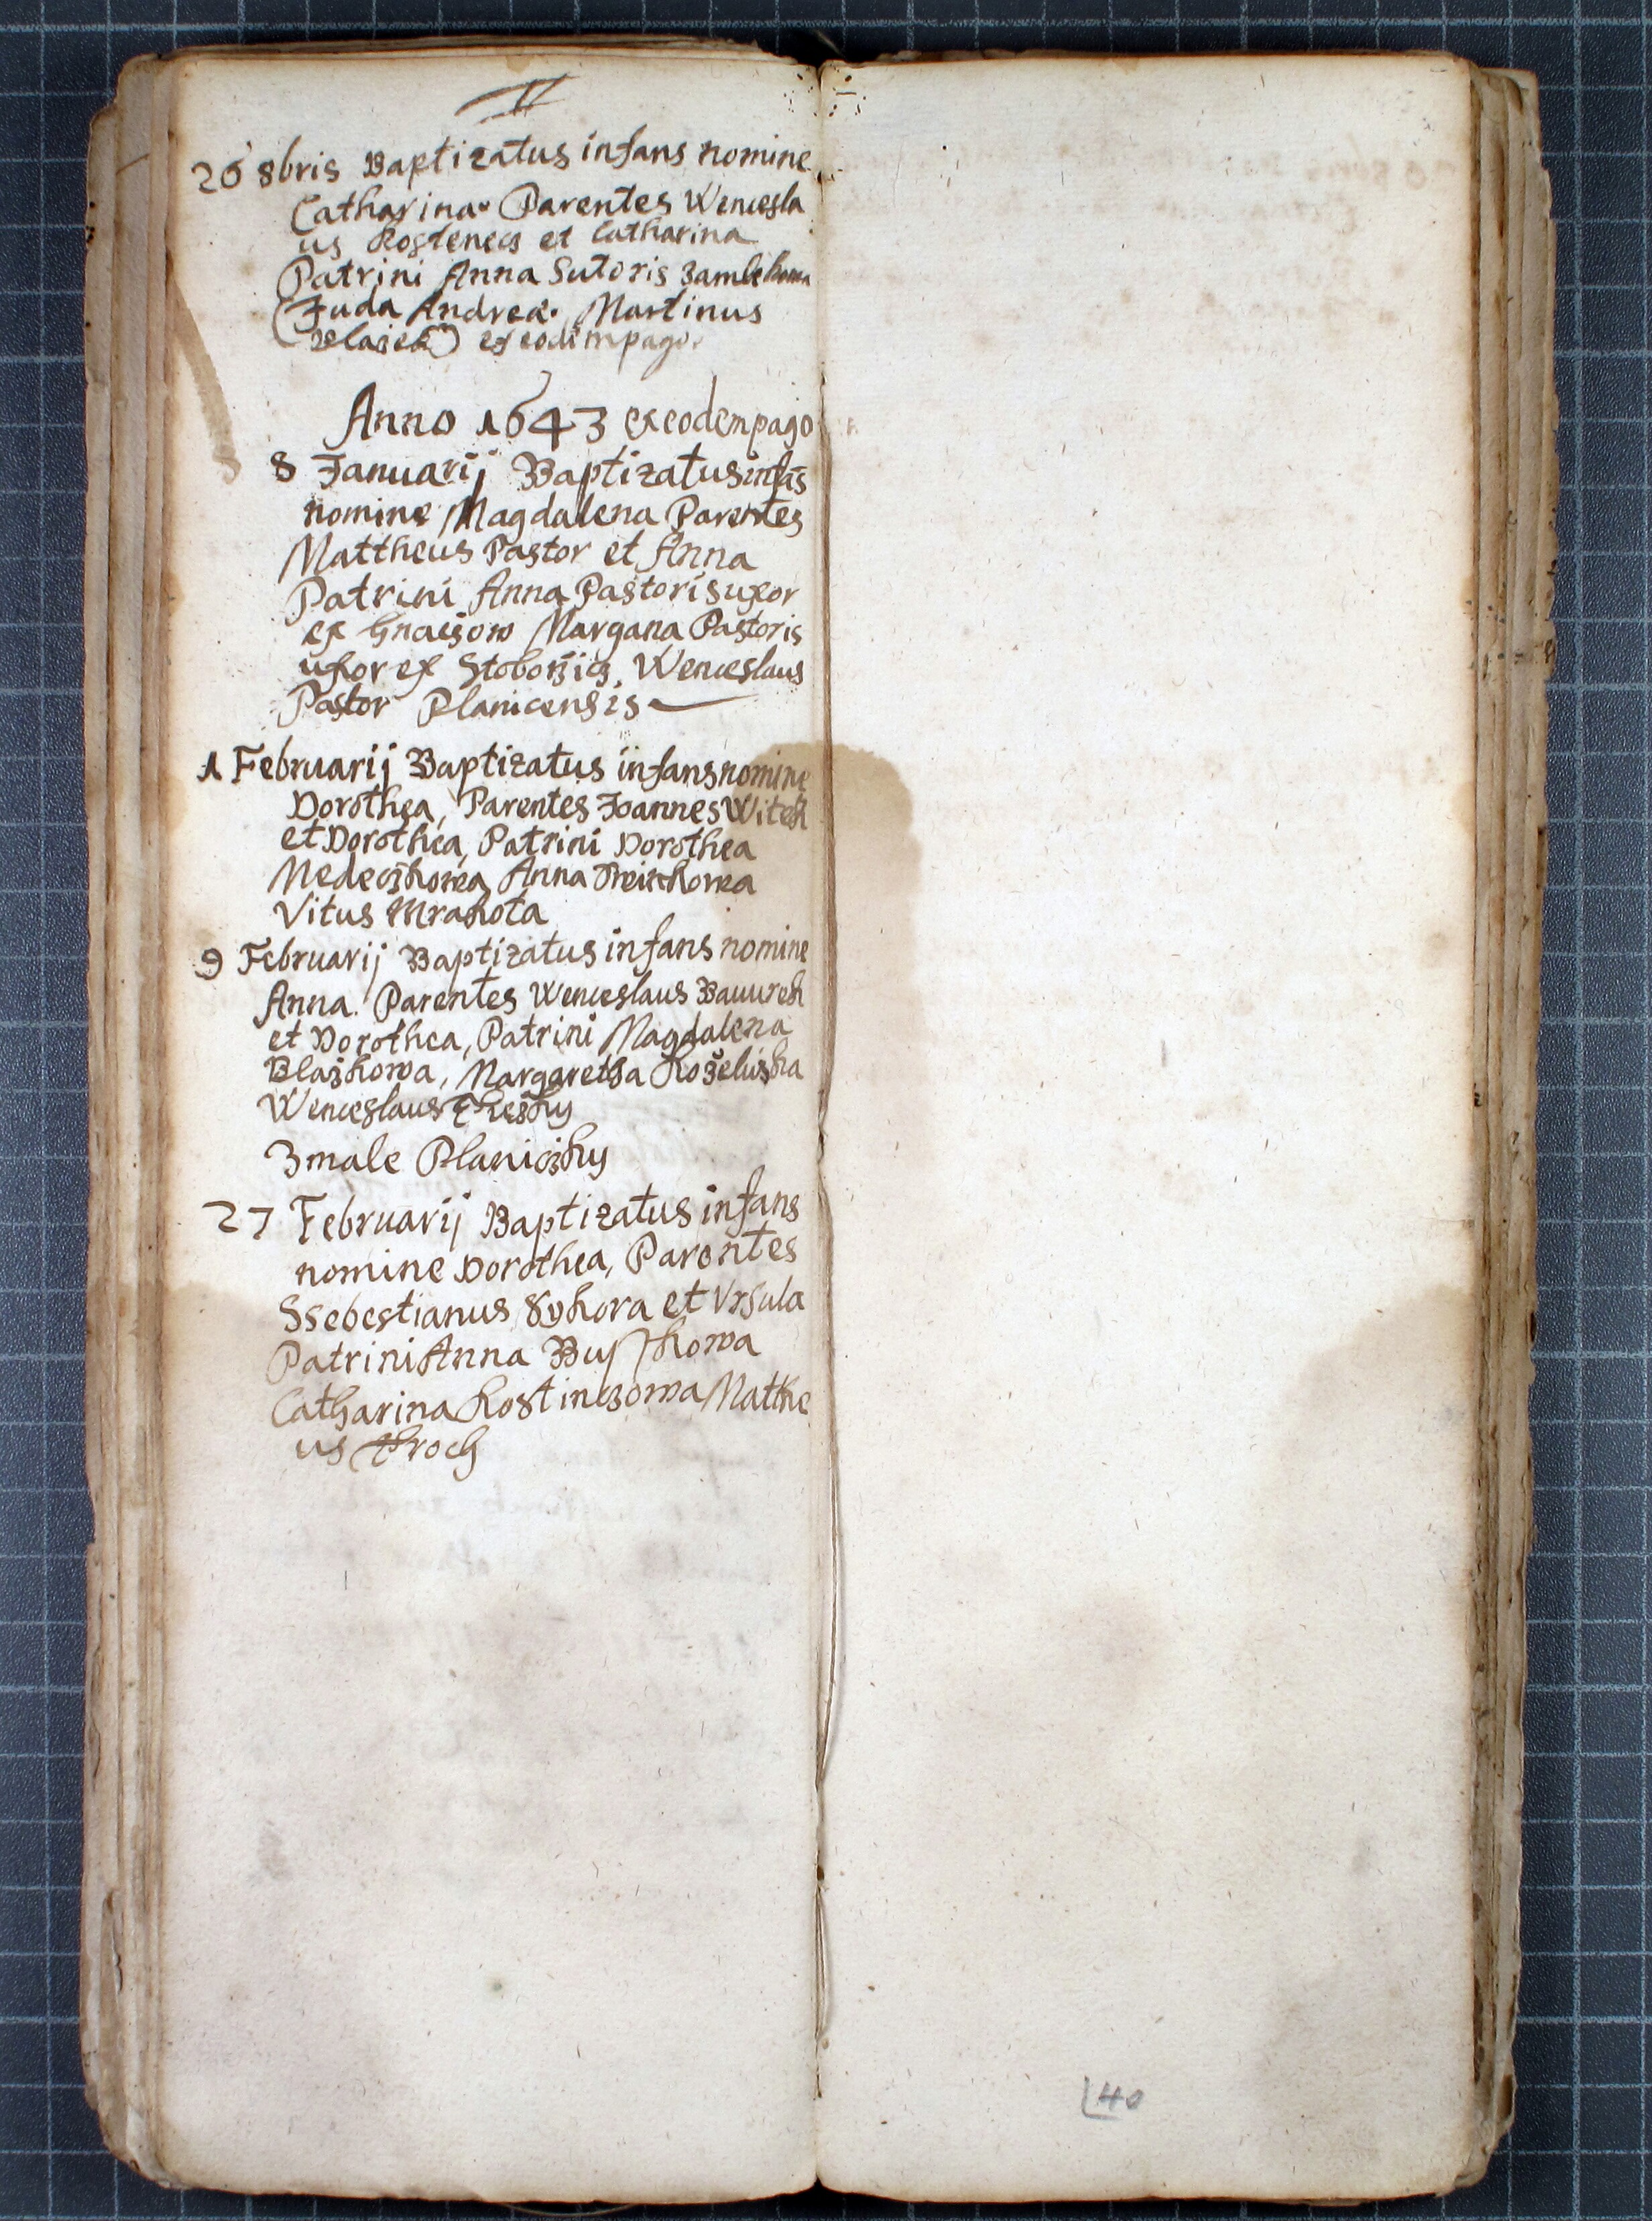 26 8bris Baptizatus infans nomine
Catharina. Parentes Wencesla
us Kostenecz et Catharina
Patrini Anna Sutoris
Juda Andreæ. Martinus
ex eodē pago.
Anno 1643 ex eodem pago
8 8 Januarij Baptizatus infās
nomine Magdalena Parentes
Mattheus Pastor et Anna
Patrini Anna Pastoris uxor
ex Margana Pastoris
uxor ex Wenceslaus
Pastor Planicensis
1 Februarij Baptizatus infans nomine
Dorothea, Parentes Joannes Witek
et Dorothea, Patrini Dorothea
Anna
Vitus Mrakota
9 Februarij Baptizatus infans nomine
Anna. Parentes Wenceslaus Bauurek
et Dorothea, Patrini Magdalena
Blažkowa, Margaretha
Wenceslaus
Z male Planiczky
27 Februarij Baptizatus infans
nomine Dorothea, Parentes
Ssebestianus Sykora et Vrsula
Patrini Anna
Catharina Kostinczowa Matthe
us
40